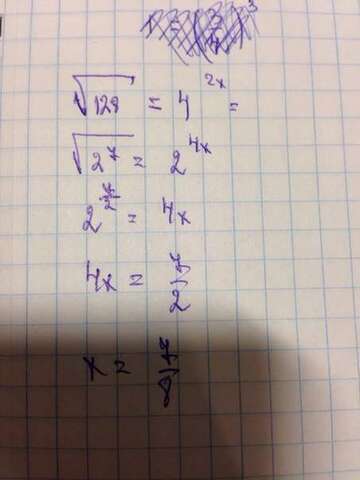 √128 = 4^2x =
√2^7 = 2^4x
2^7/2 = 4x
4x = 7/2
x = 7/8